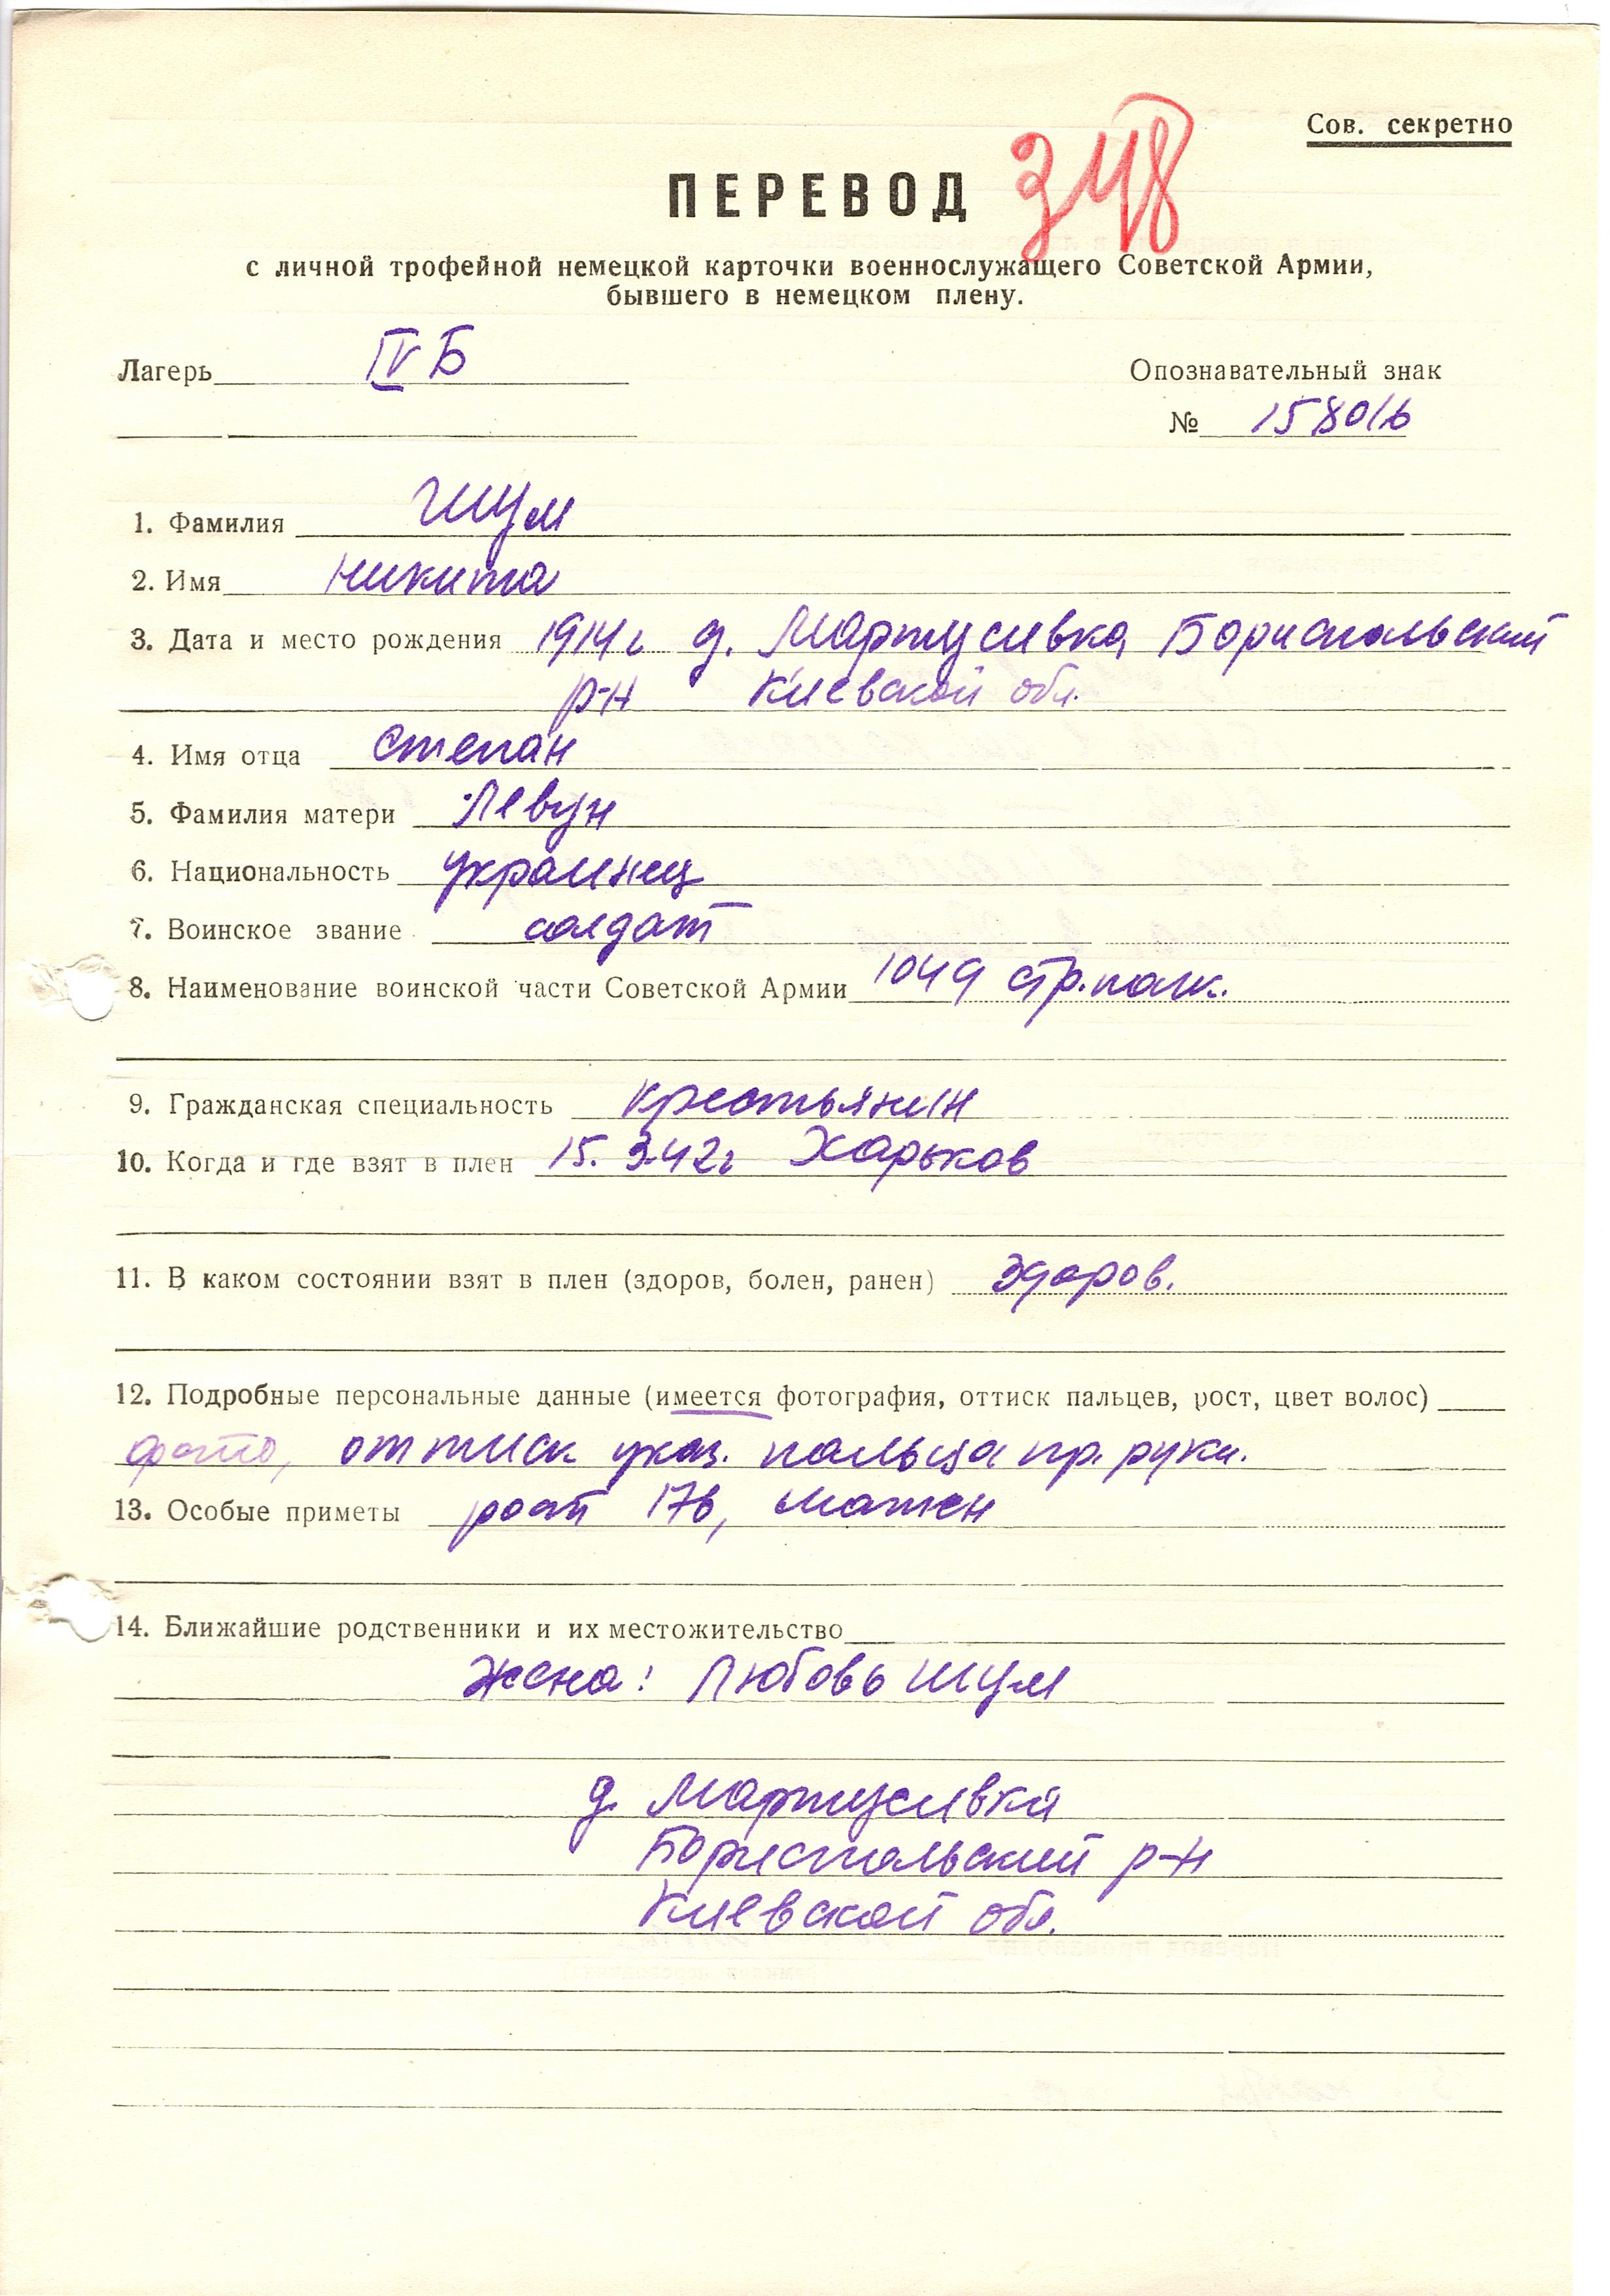 Сов. секретно
348
ПЕРЕВОД
с личной трофейной немецкой карточки военнослужащего Советской Армии,
бывшего в немецком плену.
Лагерь IV Б
Опознавательный знак
№ 158016
1. Фамилия Шум
2. Имя Никита
3. Дата и место рождения 1914 г д. Мартусивка Бориспольский
р-н Киевской обл.
4. Имя отца Степан
5. Фамилия матери Левун
6. Национальность украинец
7. Воинское звание солдат
8. Наименование воинской части Советской Армии 1049 стр. полк.
9. Гражданская специальность крестьянин
10. Когда и где взят в плен 15. 3.42 г Харьков
11. В каком состоянии взят в плен (здоров, болен, ранен) здоров.
12. Подробные персональные данные (имеется фотография, оттиск пальцев, рост, цвет волос)
фото, оттиск указ. пальца пр. руки.
13. Особые приметы рост 176,
14. Ближайшие родственники и их местожительство
Жена: Любовь Шум
д. Мартусивка
Бориспольский р-н
Киевской обл.